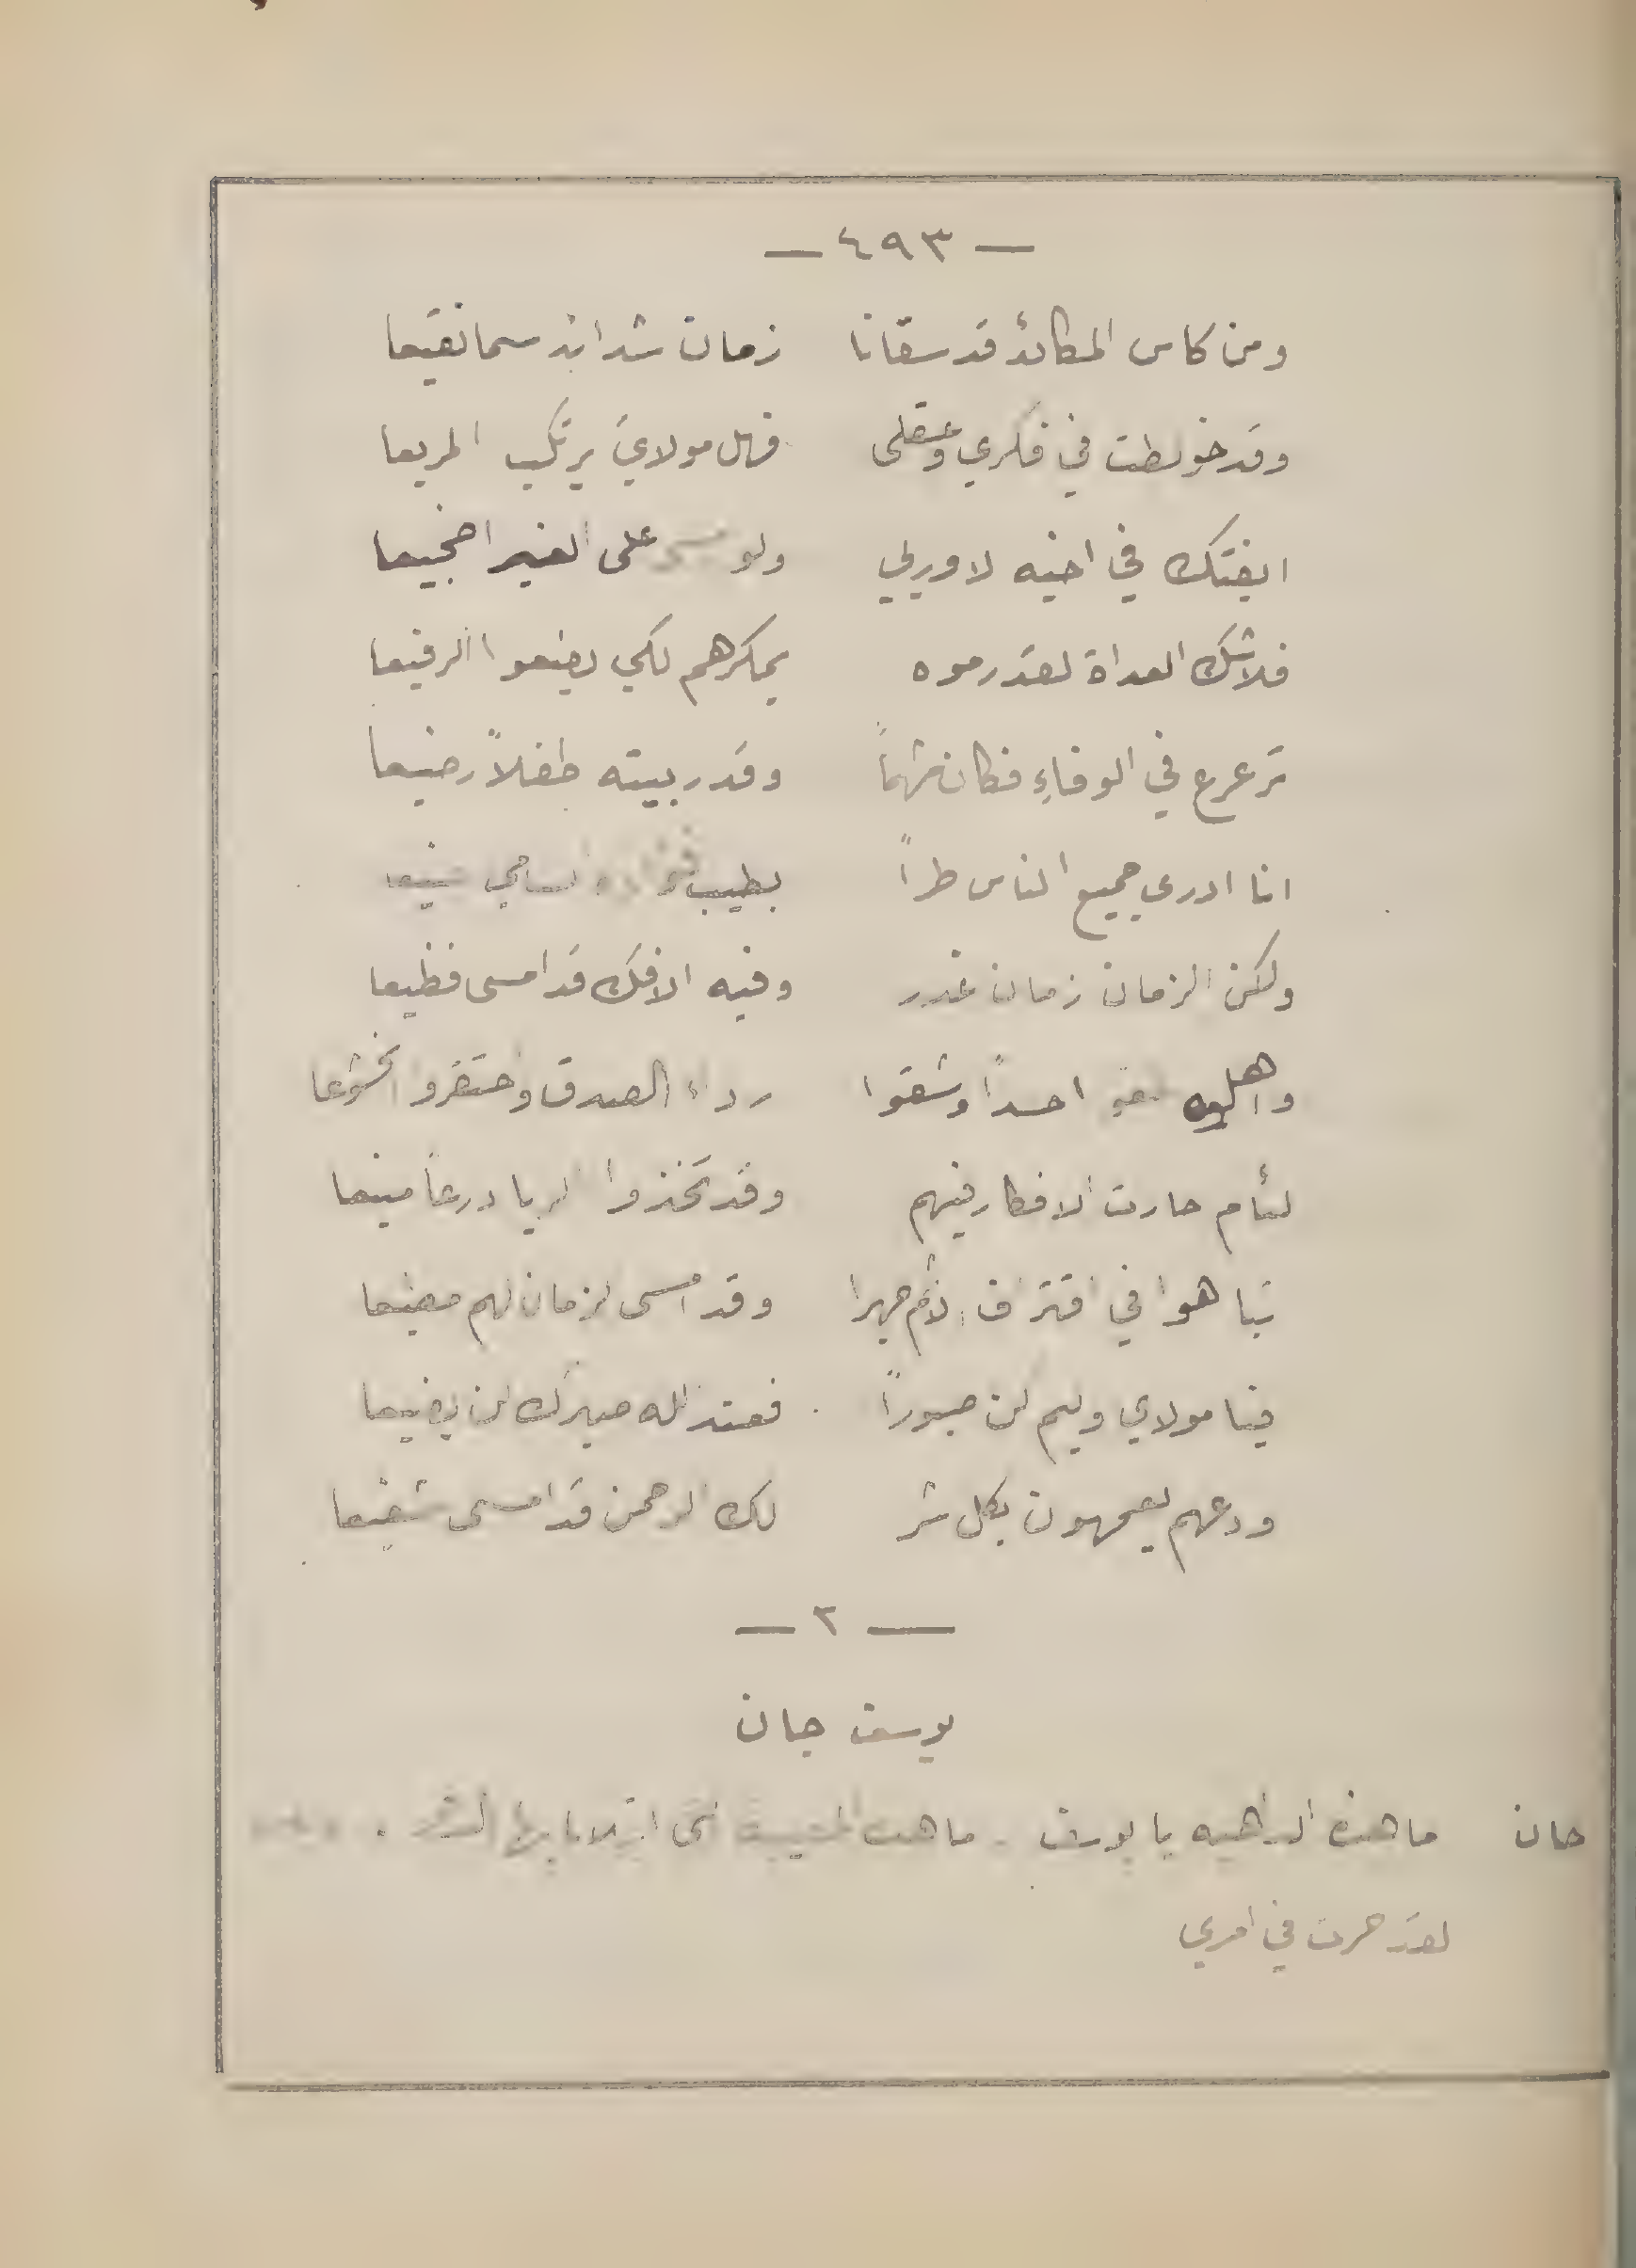 — ٤٩٣ —
ومن كاس المكائد قد سقانا زمان شدائد سما نقيعا
وقد خولطت في فكري وعقلي فهل مولاي يرتكب المريعا
ايفتك في اخيه لا وربي ولو على الغير اضجيعا
فلا شك العداة لقد رموه بمكرهم لكي يضعوا الرفيعا
ترعرع في الوفاءِ فكان شهماً وقد ربيته طفلاً رضيعا
انا ادري جميع الناس طراً بطيب
ولكن الزمان زمان غدر وفيه الافك قد امسى فظيعا
واهلوه احداً وشقوا رداء الصدق وحتقروا الخشوعا
لئام حارت الافكار فيهم وقد تخذوا الريا درعاً منيعا
تباهوا في اقتراف الاثم جهرا وقد امسى الزمان لهم مضيعا
فيا مولاي ويليم كن صبوراً فعند الله صبرك لن يضيعا
ودعهم يعمهون بكل شر لك الرحمن قد امسى شفيعا
— ٢ —
يوسف جان
جان ما هذه الداهيه يا يوسف . ما هذه المصيبة التي ابتلانا بها
لقد حرت في امري